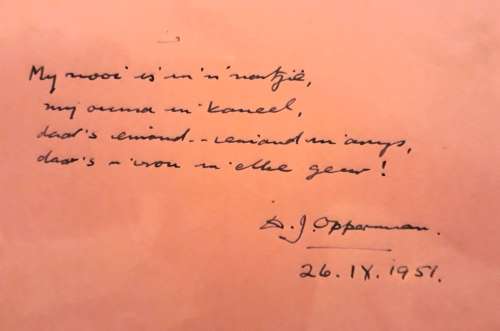 My nooi is in 'n nartjie,
my ouma in kaneel,
daar's iemand.. iemand in anys,
daar's 'n vrou in elke geur!
D. J. Opperman.
26. IX. 1951.